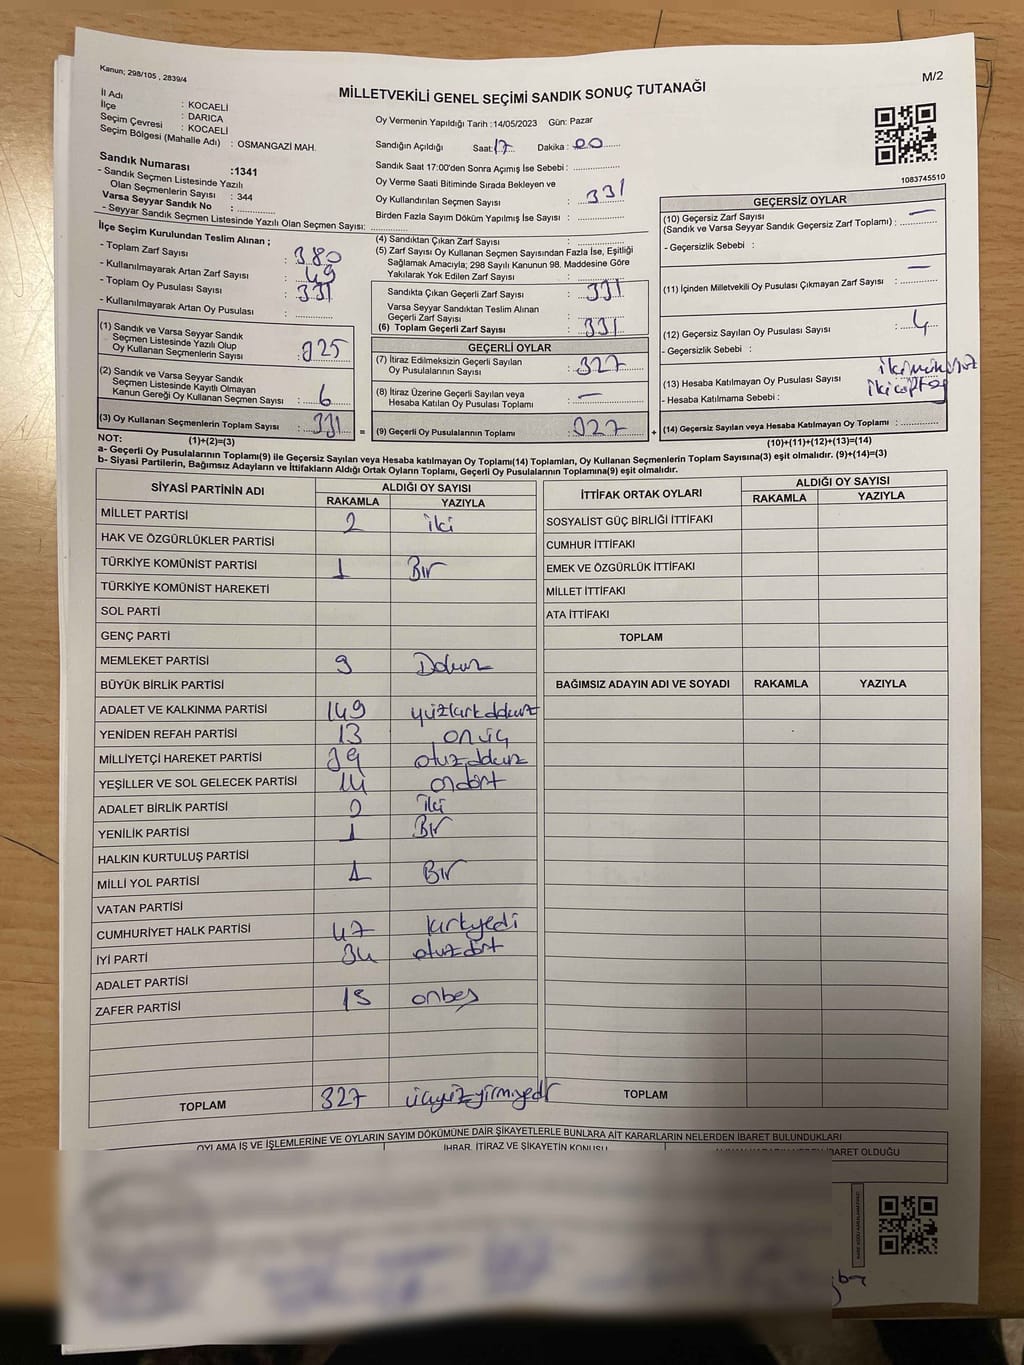 Kanun; 298/105 , 2839/4
M/2
MİLLETVEKİLİ GENEL SEÇİMİ SANDIK SONUÇ TUTANAĞI
İl Adı : KOCAELİ
İlçe : DARICA
Seçim Çevresi : KOCAELİ
Seçim Bölgesi (Mahalle Adı) : OSMANGAZİ MAH.
Sandık Numarası :1341
- Sandık Seçmen Listesinde Yazılı
Olan Seçmenlerin Sayısı : 344
Varsa Seyyar Sandık No :
- Seyyar Sandık Seçmen Listesinde Yazılı Olan Seçmen Sayısı:
Oy Vermenin Yapıldığı Tarih :14/05/2023 Gün: Pazar
Sandığın Açıldığı Saat: 17 Dakika : 00
Sandık Saat 17:00'den Sonra Açımış İse Sebebi :
Oy Verme Saati Bitiminde Sırada Bekleyen ve
Oy Kullandırılan Seçmen Sayısı : 331
Birden Fazla Sayım Döküm Yapılmış İse Sayısı :
1083745510
İlçe Seçim Kurulundan Teslim Alınan ;
- Toplam Zarf Sayısı : 380
- Kullanılmayarak Artan Zarf Sayısı : 49
- Toplam Oy Pusulası Sayısı : 331
- Kullanılmayarak Artan Oy Pusulası :
(1) Sandık ve Varsa Seyyar Sandık
Seçmen Listesinde Yazılı Olup
Oy Kullanan Seçmenlerin Sayısı : 325
(2) Sandık ve Varsa Seyyar Sandık
Seçmen Listesinde Kayıtlı Olmayan
Kanun Gereği Oy Kullanan Seçmen Sayısı : 6
(3) Oy Kullanan Seçmenlerin Toplam Sayısı : 331 =
(4) Sandıktan Çıkan Zarf Sayısı :
(5) Zarf Sayısı Oy Kullanan Seçmen Sayısından Fazla İse, Eşitliği
Sağlamak Amacıyla; 298 Sayılı Kanunun 98. Maddesine Göre
Yakılarak Yok Edilen Zarf Sayısı :
Sandıkta Çıkan Geçerli Zarf Sayısı : 331
Varsa Seyyar Sandıktan Teslim Alınan
Geçerli Zarf Sayısı :
(6) Toplam Geçerli Zarf Sayısı : 331
GEÇERLİ OYLAR
(7) İtiraz Edilmeksizin Geçerli Sayılan
Oy Pusulalarının Sayısı : 327
(8) İtiraz Üzerine Geçerli Sayılan veya
Hesaba Katılan Oy Pusulası Toplamı : —
(9) Geçerli Oy Pusulalarının Toplamı : 327 +
GEÇERSİZ OYLAR
(10) Geçersiz Zarf Sayısı
(Sandık ve Varsa Seyyar Sandık Geçersiz Zarf Toplamı) : —
- Geçersizlik Sebebi :
(11) İçinden Milletvekili Oy Pusulası Çıkmayan Zarf Sayısı : —
(12) Geçersiz Sayılan Oy Pusulası Sayısı : 4
- Geçersizlik Sebebi :
(13) Hesaba Katılmayan Oy Pusulası Sayısı :
- Hesaba Katılmama Sebebi :
(14) Geçersiz Sayılan veya Hesaba Katılmayan Oy Toplamı :
NOT: (1)+(2)=(3)
(10)+(11)+(12)+(13)=(14)
a- Geçerli Oy Pusulalarının Toplamı(9) ile Geçersiz Sayılan veya Hesaba katılmayan Oy Toplamı(14) Toplamları, Oy Kullanan Seçmenlerin Toplam Sayısına(3) eşit olmalıdır. (9)+(14)=(3)
b- Siyasi Partilerin, Bağımsız Adayların ve İttifakların Aldığı Ortak Oyların Toplamı, Geçerli Oy Pusulalarının Toplamına(9) eşit olmalıdır.
SİYASİ PARTİNİN ADI ALDIĞI OY SAYISI
RAKAMLA YAZIYLA
MİLLET PARTİSİ 2 iki
HAK VE ÖZGÜRLÜKLER PARTİSİ
TÜRKİYE KOMÜNİST PARTİSİ 1 Bir
TÜRKİYE KOMÜNİST HAREKETİ
SOL PARTİ
GENÇ PARTİ
MEMLEKET PARTİSİ 9 Dokuz
BÜYÜK BİRLİK PARTİSİ
ADALET VE KALKINMA PARTİSİ 149 yüzkırkdokuz
YENİDEN REFAH PARTİSİ 13 onüç
MİLLİYETÇİ HAREKET PARTİSİ 39 otuzdokuz
YEŞİLLER VE SOL GELECEK PARTİSİ 14 ondört
ADALET BİRLİK PARTİSİ 2 iki
YENİLİK PARTİSİ 1 Bir
HALKIN KURTULUŞ PARTİSİ
MİLLİ YOL PARTİSİ 1 Bir
VATAN PARTİSİ
CUMHURİYET HALK PARTİSİ 47 kırkyedi
İYİ PARTİ 34 otuzdört
ADALET PARTİSİ
ZAFER PARTİSİ 15 onbeş
TOPLAM 327 üçyüzyirmiyedi
İTTİFAK ORTAK OYLARI ALDIĞI OY SAYISI
RAKAMLA YAZIYLA
SOSYALİST GÜÇ BİRLİĞİ İTTİFAKI
CUMHUR İTTİFAKI
EMEK VE ÖZGÜRLÜK İTTİFAKI
MİLLET İTTİFAKI
ATA İTTİFAKI
TOPLAM
BAĞIMSIZ ADAYIN ADI VE SOYADI RAKAMLA YAZIYLA
TOPLAM
OYLAMA İŞ VE İŞLEMLERİNE VE OYLARIN SAYIM DÖKÜMÜNE DAİR ŞİKAYETLERLE BUNLARA AİT KARARLARIN NELERDEN İBARET BULUNDUKLARI
İHBAR, İTİRAZ VE ŞİKAYETİN KONUSU
İBARET OLDUĞU